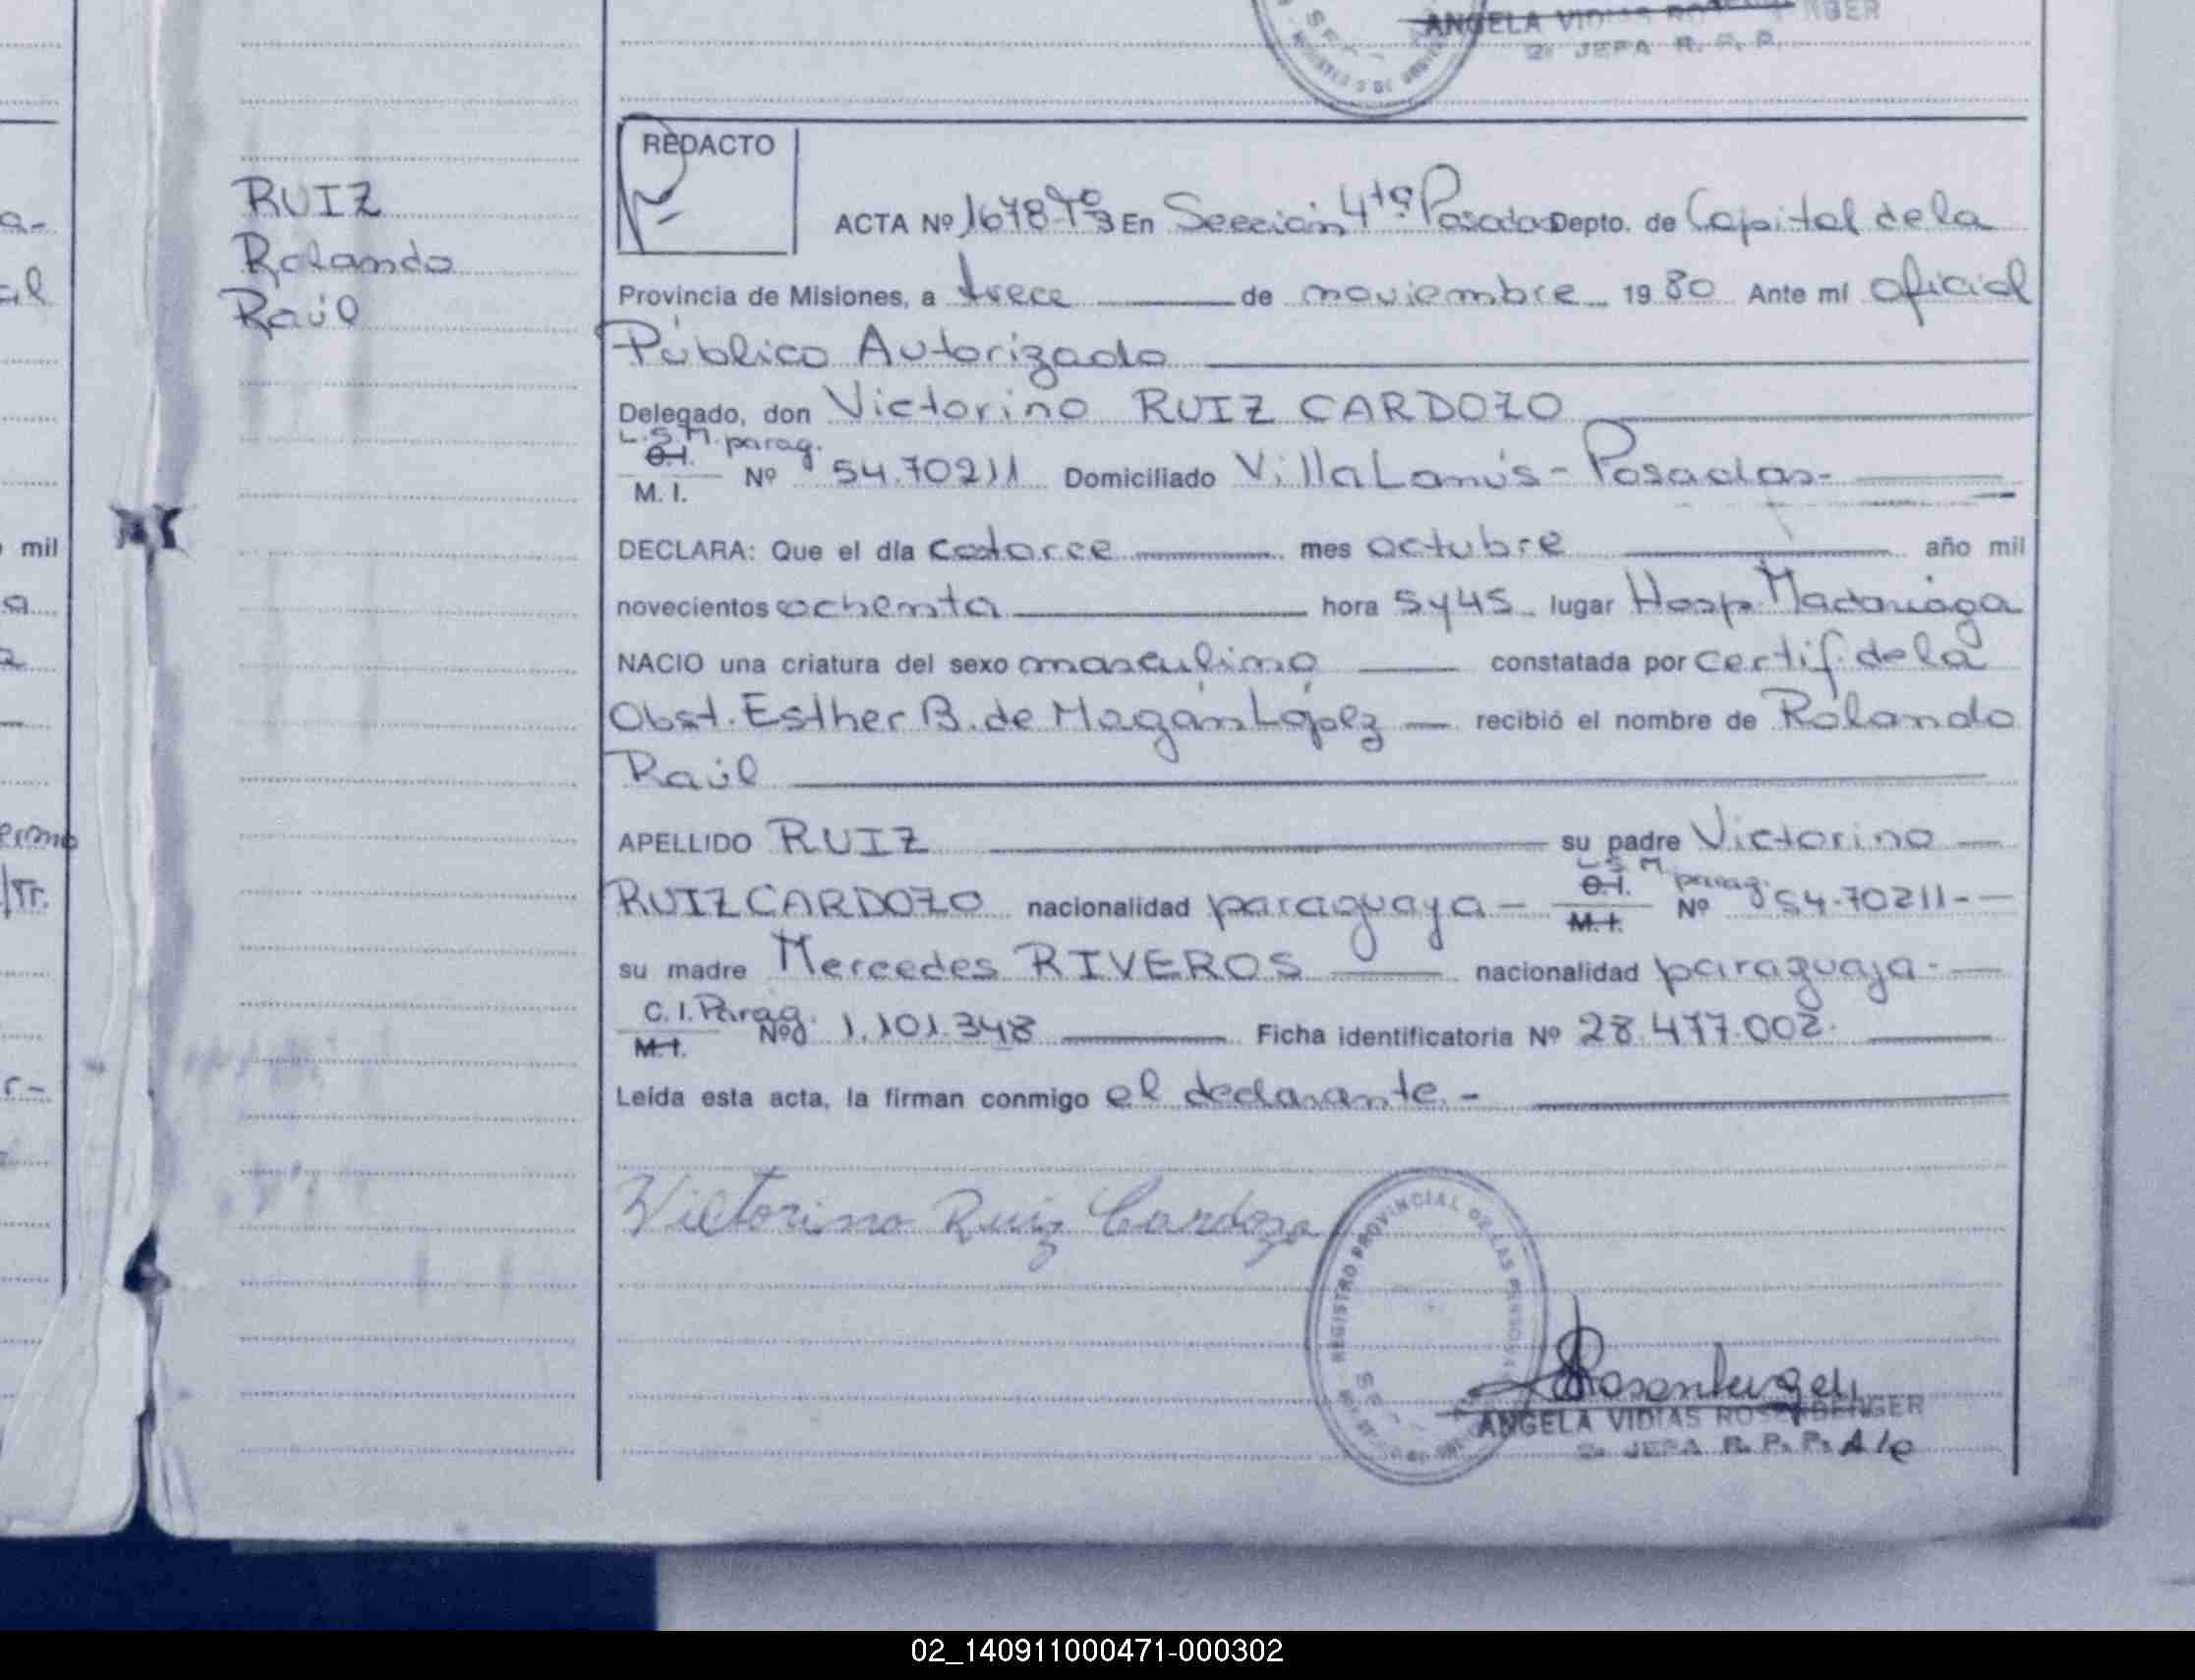 ANGELA
2: JEFA R. P. P.
REDACTO
RUIZ
Rolando
Raúl
ACTA Nº 1678 Tº 3 En Sección 4ta. Posadas Depto. de Capital de la
Provincia de Misiones, a trece de noviembre 1980 Ante mí Oficial
Público Autorizado
Delegado, don Victorino RUIZ CARDOZO
L.S.M. parag.
C.I.
M. I. Nº 54.70211 Domiciliado Villa Lanús - Posadas.-
DECLARA: Que el día catorce mes octubre año mil
novecientos ochenta hora 5 y 45 lugar Hosp. Madariaga
NACIO una criatura del sexo masculino constatada por certif. de la
Obst. Esther B. de Magán López recibió el nombre de Rolando
Raúl
APELLIDO RUIZ su padre Victorino
L.S.M. parag.
RUIZ CARDOZO nacionalidad paraguaya - C.I. M.I. Nº 54.70211--
su madre Mercedes RIVEROS nacionalidad paraguaya.-
C.I. Parag.
M.I. Nº 1.101.348 Ficha identificatoria Nº 28.477.002.
Leída esta acta, la firman conmigo el declarante.-
Victorino Ruiz Cardozo
REGISTRO PROVINCIAL DE LAS PERSONAS
Rosenberger
ANGELA VIDIAS ROSENBERGER
2: JEFA R. P. P. A/c
mil
Tr.
02_140911000471-000302